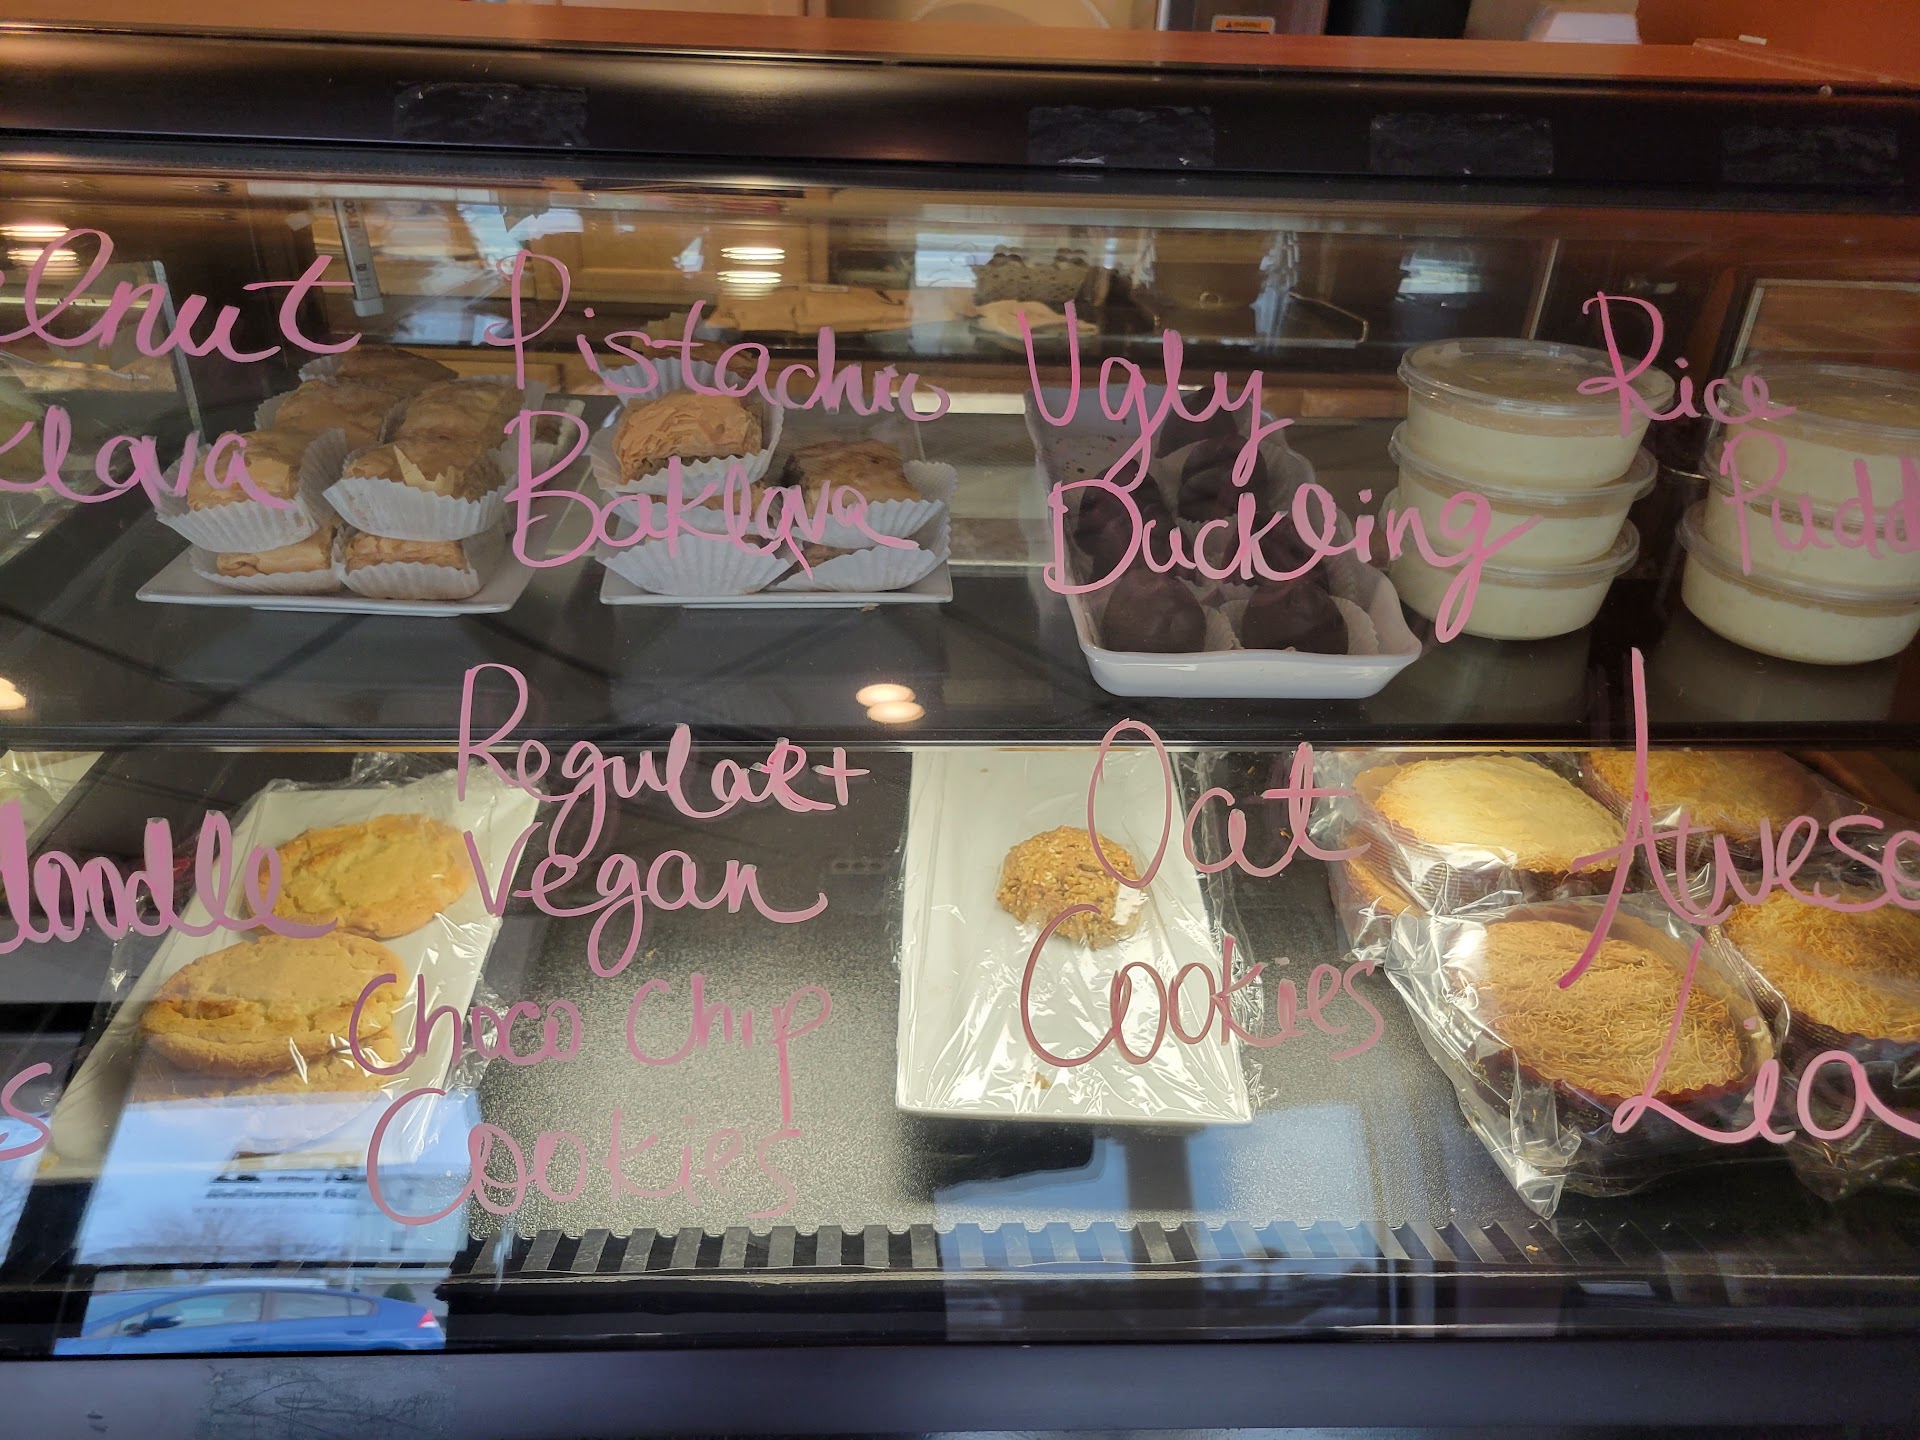 lnut
klava
Pistachio
Baklava
Ugly
Duckling
Rice
Pudd
doodle
s
Regular +
Vegan
Choco Chip
Cookies
Oat
Cookies
Aweso
Lia